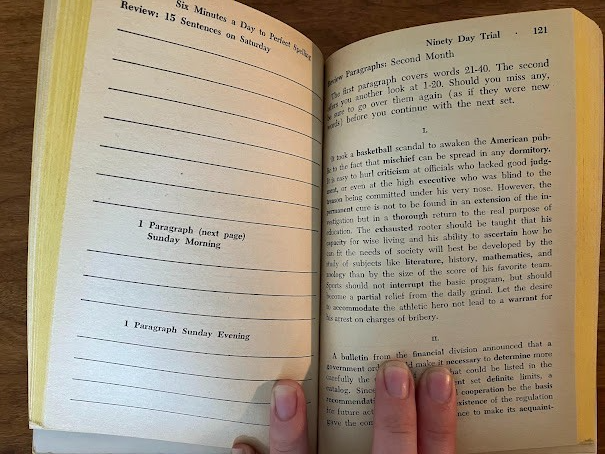 Six Minutes a Day to Perfect Spelling
Review: 15 Sentences on Saturday
1 Paragraph (next page)
Sunday Morning
1 Paragraph Sunday Evening
Ninety Day Trial · 121
Review Paragraphs: Second Month
The first paragraph covers words 21-40. The second
you another look at 1-20. Should you miss any,
sure to go over them again (as if they were new
words) before you continue with the next set.
I.
It took a basketball scandal to awaken the American pub-
lic to the fact that mischief can be spread in any dormitory.
It is easy to hurl criticism at officials who lacked good judg-
ment, or even at the high executive who was blind to the
treason being committed under his very nose. However, the
permanent cure is not to be found in an extension of the in-
vestigation but in a thorough return to the real purpose of
education. The exhausted rooter should be taught that his
capacity for wise living and his ability to ascertain how he
can fit the needs of society will best be developed by the
study of subjects like literature, history, mathematics, and
than by the size of the score of his favorite team.
Sports should not interrupt the basic program, but should
become a partial relief from the daily grind. Let the desire
to accommodate the athletic hero not lead to a warrant for
his arrest on charges of bribery.
II.
A bulletin from the financial division announced that a
government make it necessary to determine more
carefully the set definite limits, a
catalog. Since cooperation be the basis
existence of the regulation
for future to make its acquaint-
gave the